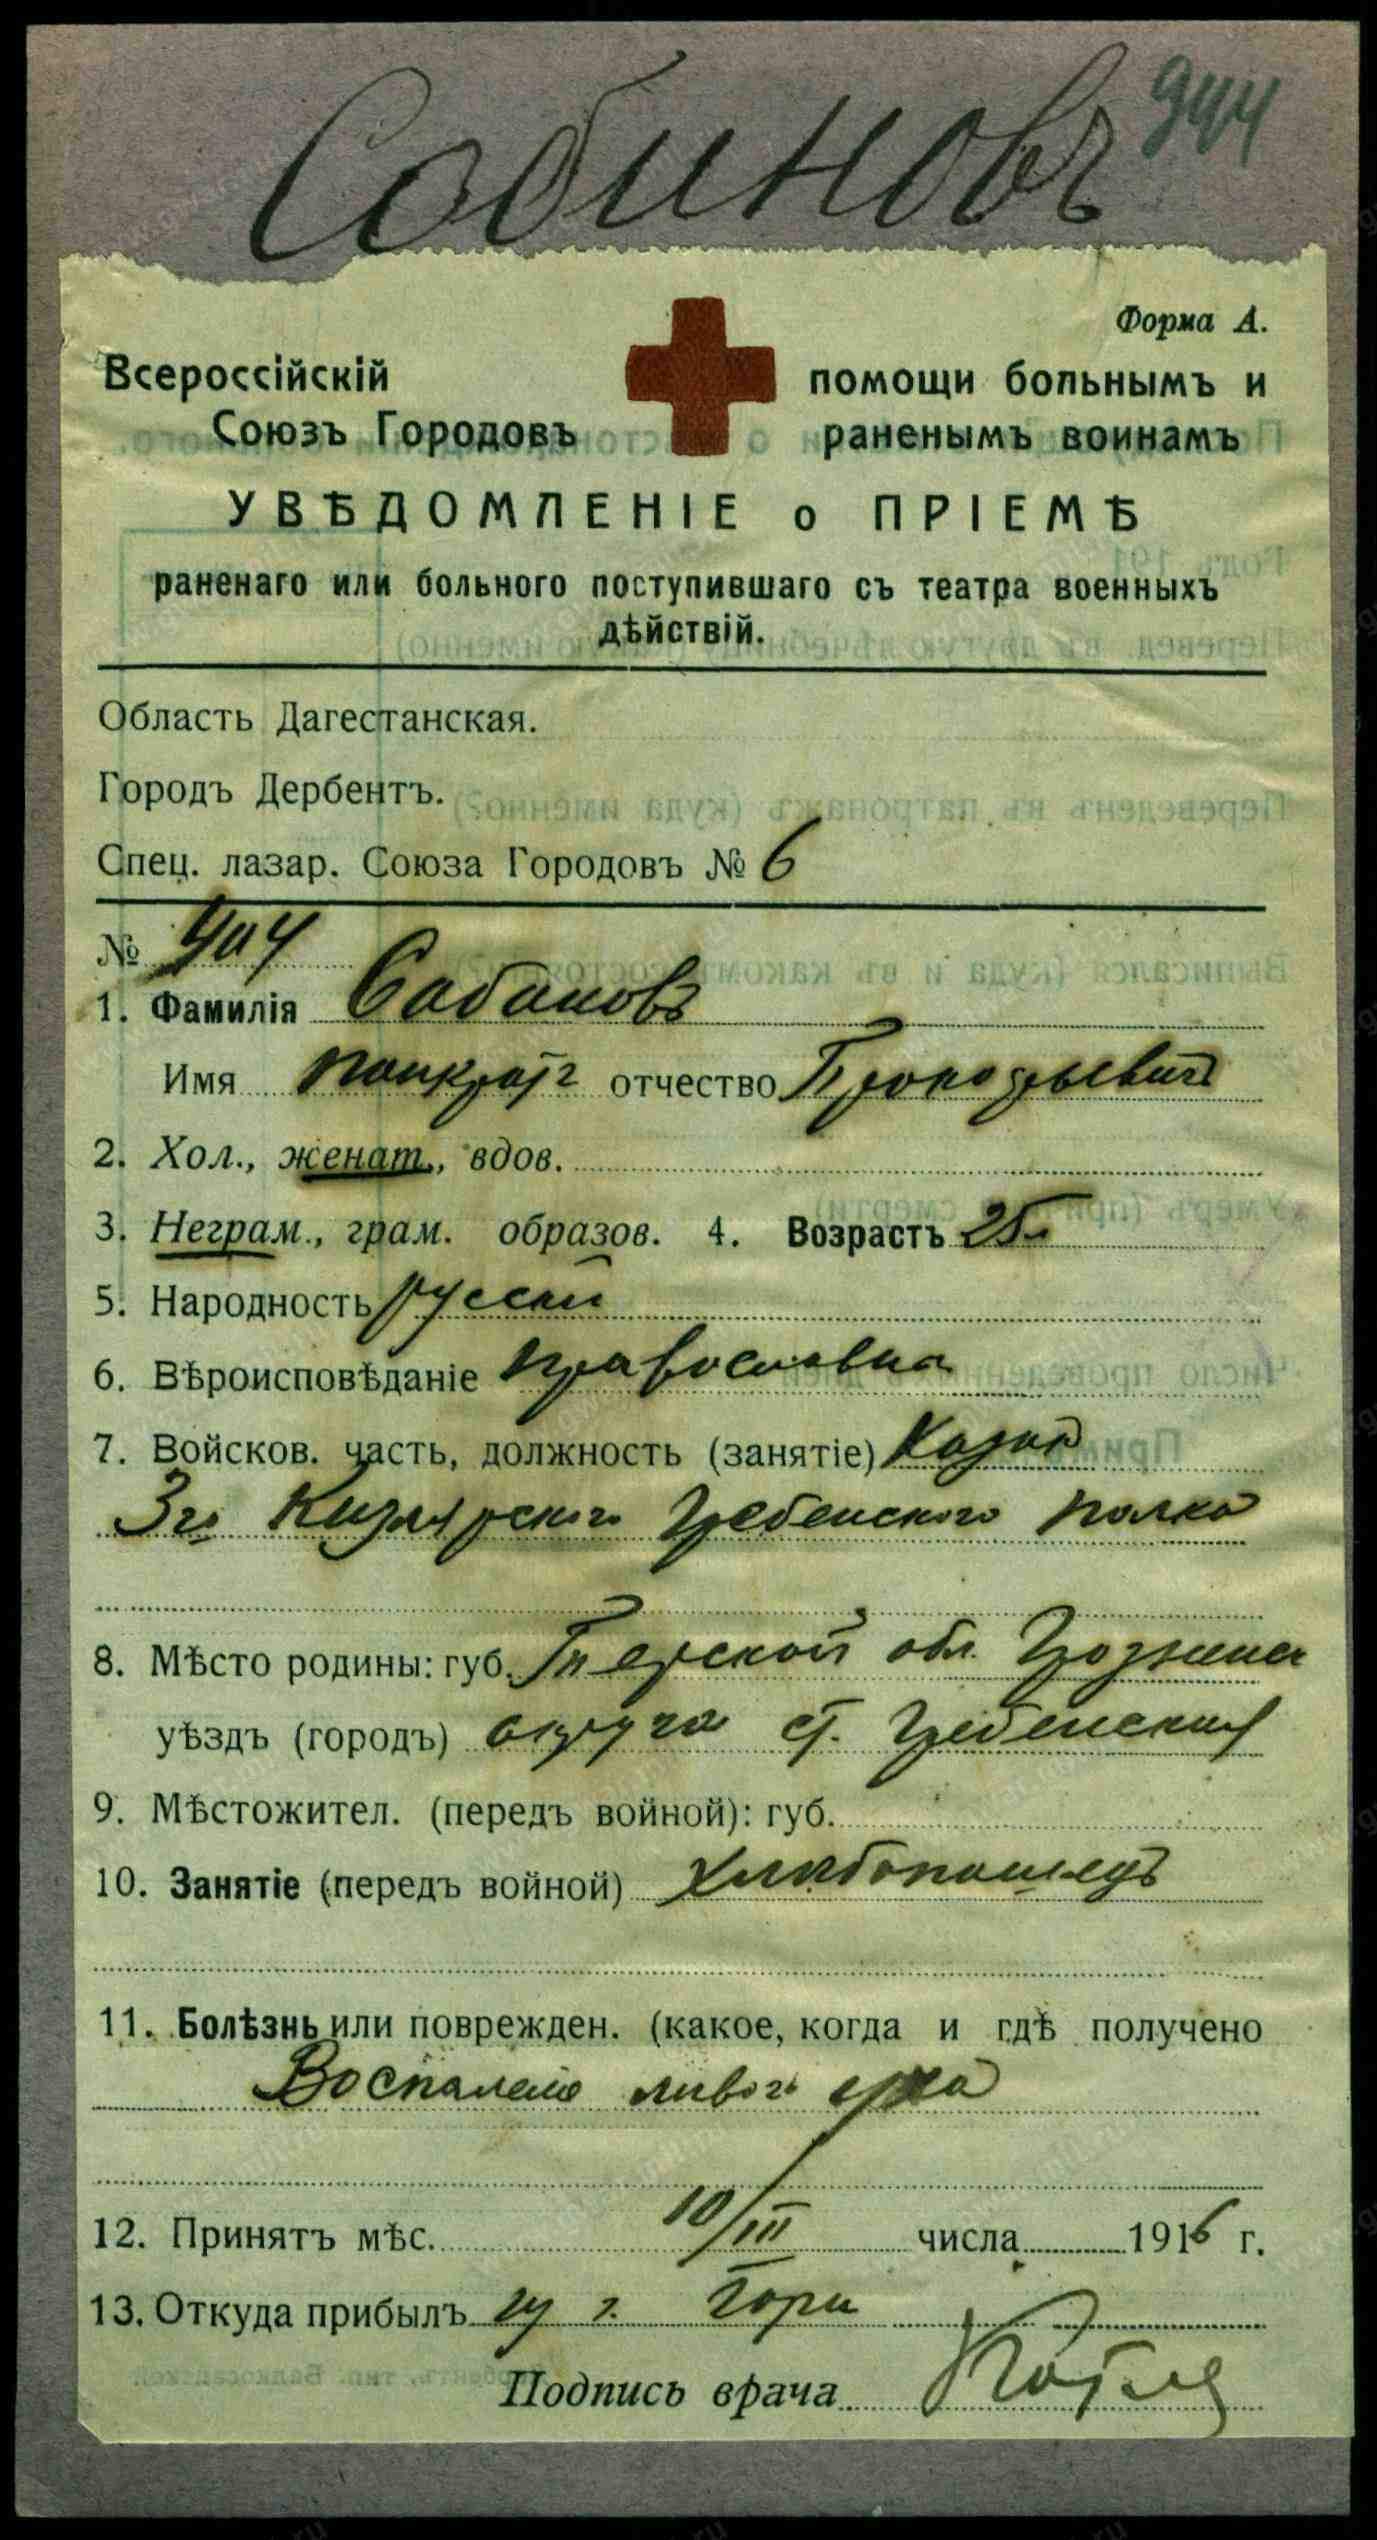 Собиновъ 944
Форма А.
Всероссійскій помощи больнымъ и
Союзъ Городовъ раненымъ воинамъ
УВѢДОМЛЕНІЕ о ПРІЕМѢ
раненаго или больного поступившаго съ театра военныхъ
дѣйствій.
Область Дагестанская.
Городъ Дербентъ.
Спец. лазар. Союза Городовъ № 6
№ 944
1. Фамилія
Имя Понкратъ отчество Прокофьевичъ
2. Хол., женат., вдов.
3. Неграм., грам. образов. 4. Возрастъ 25 л
5. Народность русскій
6. Вѣроисповѣданіе православна
7. Войсков. часть, должность (занятіе) Казак
3го Кизлярского Гребенского полка
8. Мѣсто родины: губ. Терской обл. Грознен
уѣздъ (городъ) округа ст. Гребенская
9. Мѣстожител. (передъ войной): губ.
10. Занятіе (передъ войной) хлѣбопашецъ
11. Болѣзнь или поврежден. (какое, когда и гдѣ получено
Воспаление лѣвого уха
12. Принятъ мѣс. 10/III числа 1916 г.
13. Откуда прибылъ г. Гори
Подпись врача